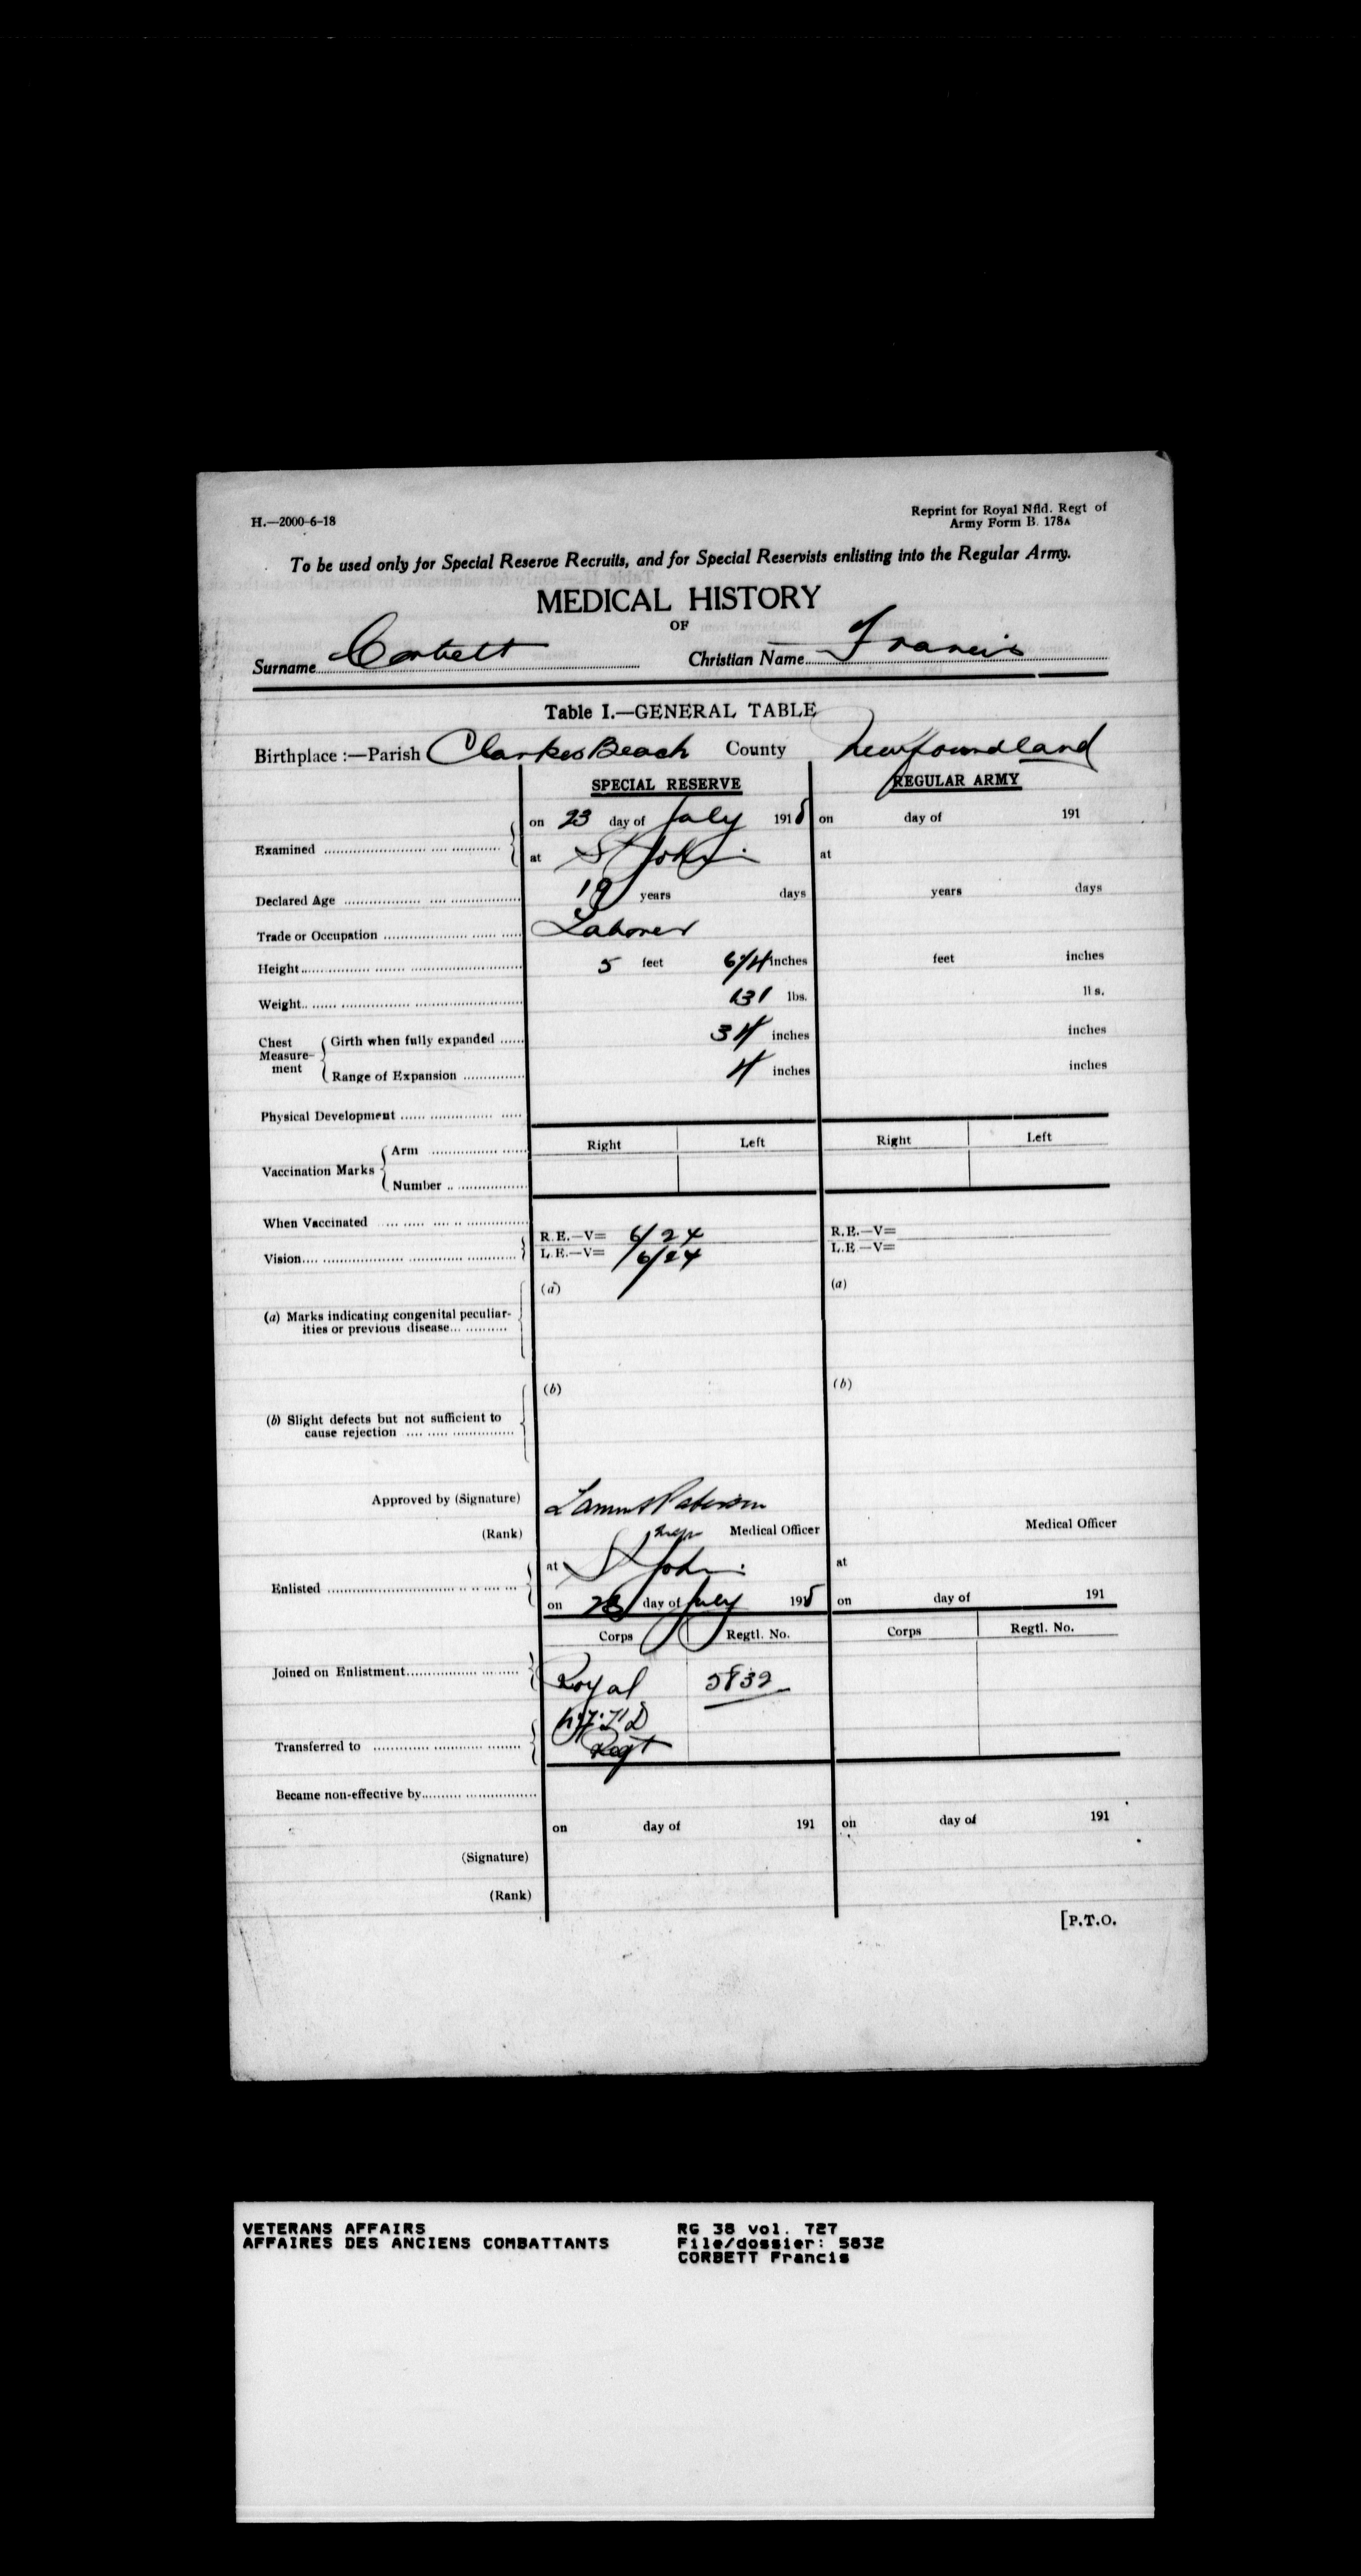 H.—2000-6-18
Reprint for Royal Nfld. Regt of
Army Form B. 178A
To be used only for Special Reserve Recruits, and for Special Reservists enlisting into the Regular Army.
MEDICAL HISTORY
OF
Surname Corbett Christian Name Francis
Table I.—GENERAL TABLE
Birthplace :—Parish Clarkes Beach County Newfoundland
SPECIAL RESERVE REGULAR ARMY
on 23 day of July 1918 on day of 191
Examined
at St John's at
Declared Age 19 years days years days
Trade or Occupation Laborer
Height 5 feet inches feet inches
Weight 131 lbs. lbs.
Chest Measurement Girth when fully expanded 34 inches inches
Range of Expansion 4 inches inches
Physical Development
Right Left Right Left
Vaccination Marks Arm
Number
When Vaccinated
Vision R.E.—V= 6/24 R.E.—V=
L.E.—V= 6/24 L.E—V=
(a) (a)
(a) Marks indicating congenital peculiar-
ities or previous disease
(b) (b)
(b) Slight defects but not sufficient to
cause rejection
Approved by (Signature) Paterson
(Rank) Medical Officer Medical Officer
at St John's at
Enlisted
on day of July 1918 on day of 191
Corps Regtl. No. Corps Regtl. No.
Joined on Enlistment Royal 5832
NFLD
Transferred to Regt
Became non-effective by
on day of 191 on day of 191
(Signature)
(Rank)
[P.T.O.
VETERANS AFFAIRS RG 38 vol. 727
AFFAIRES DES ANCIENS COMBATTANTS File/dossier: 5832
CORBETT Francis